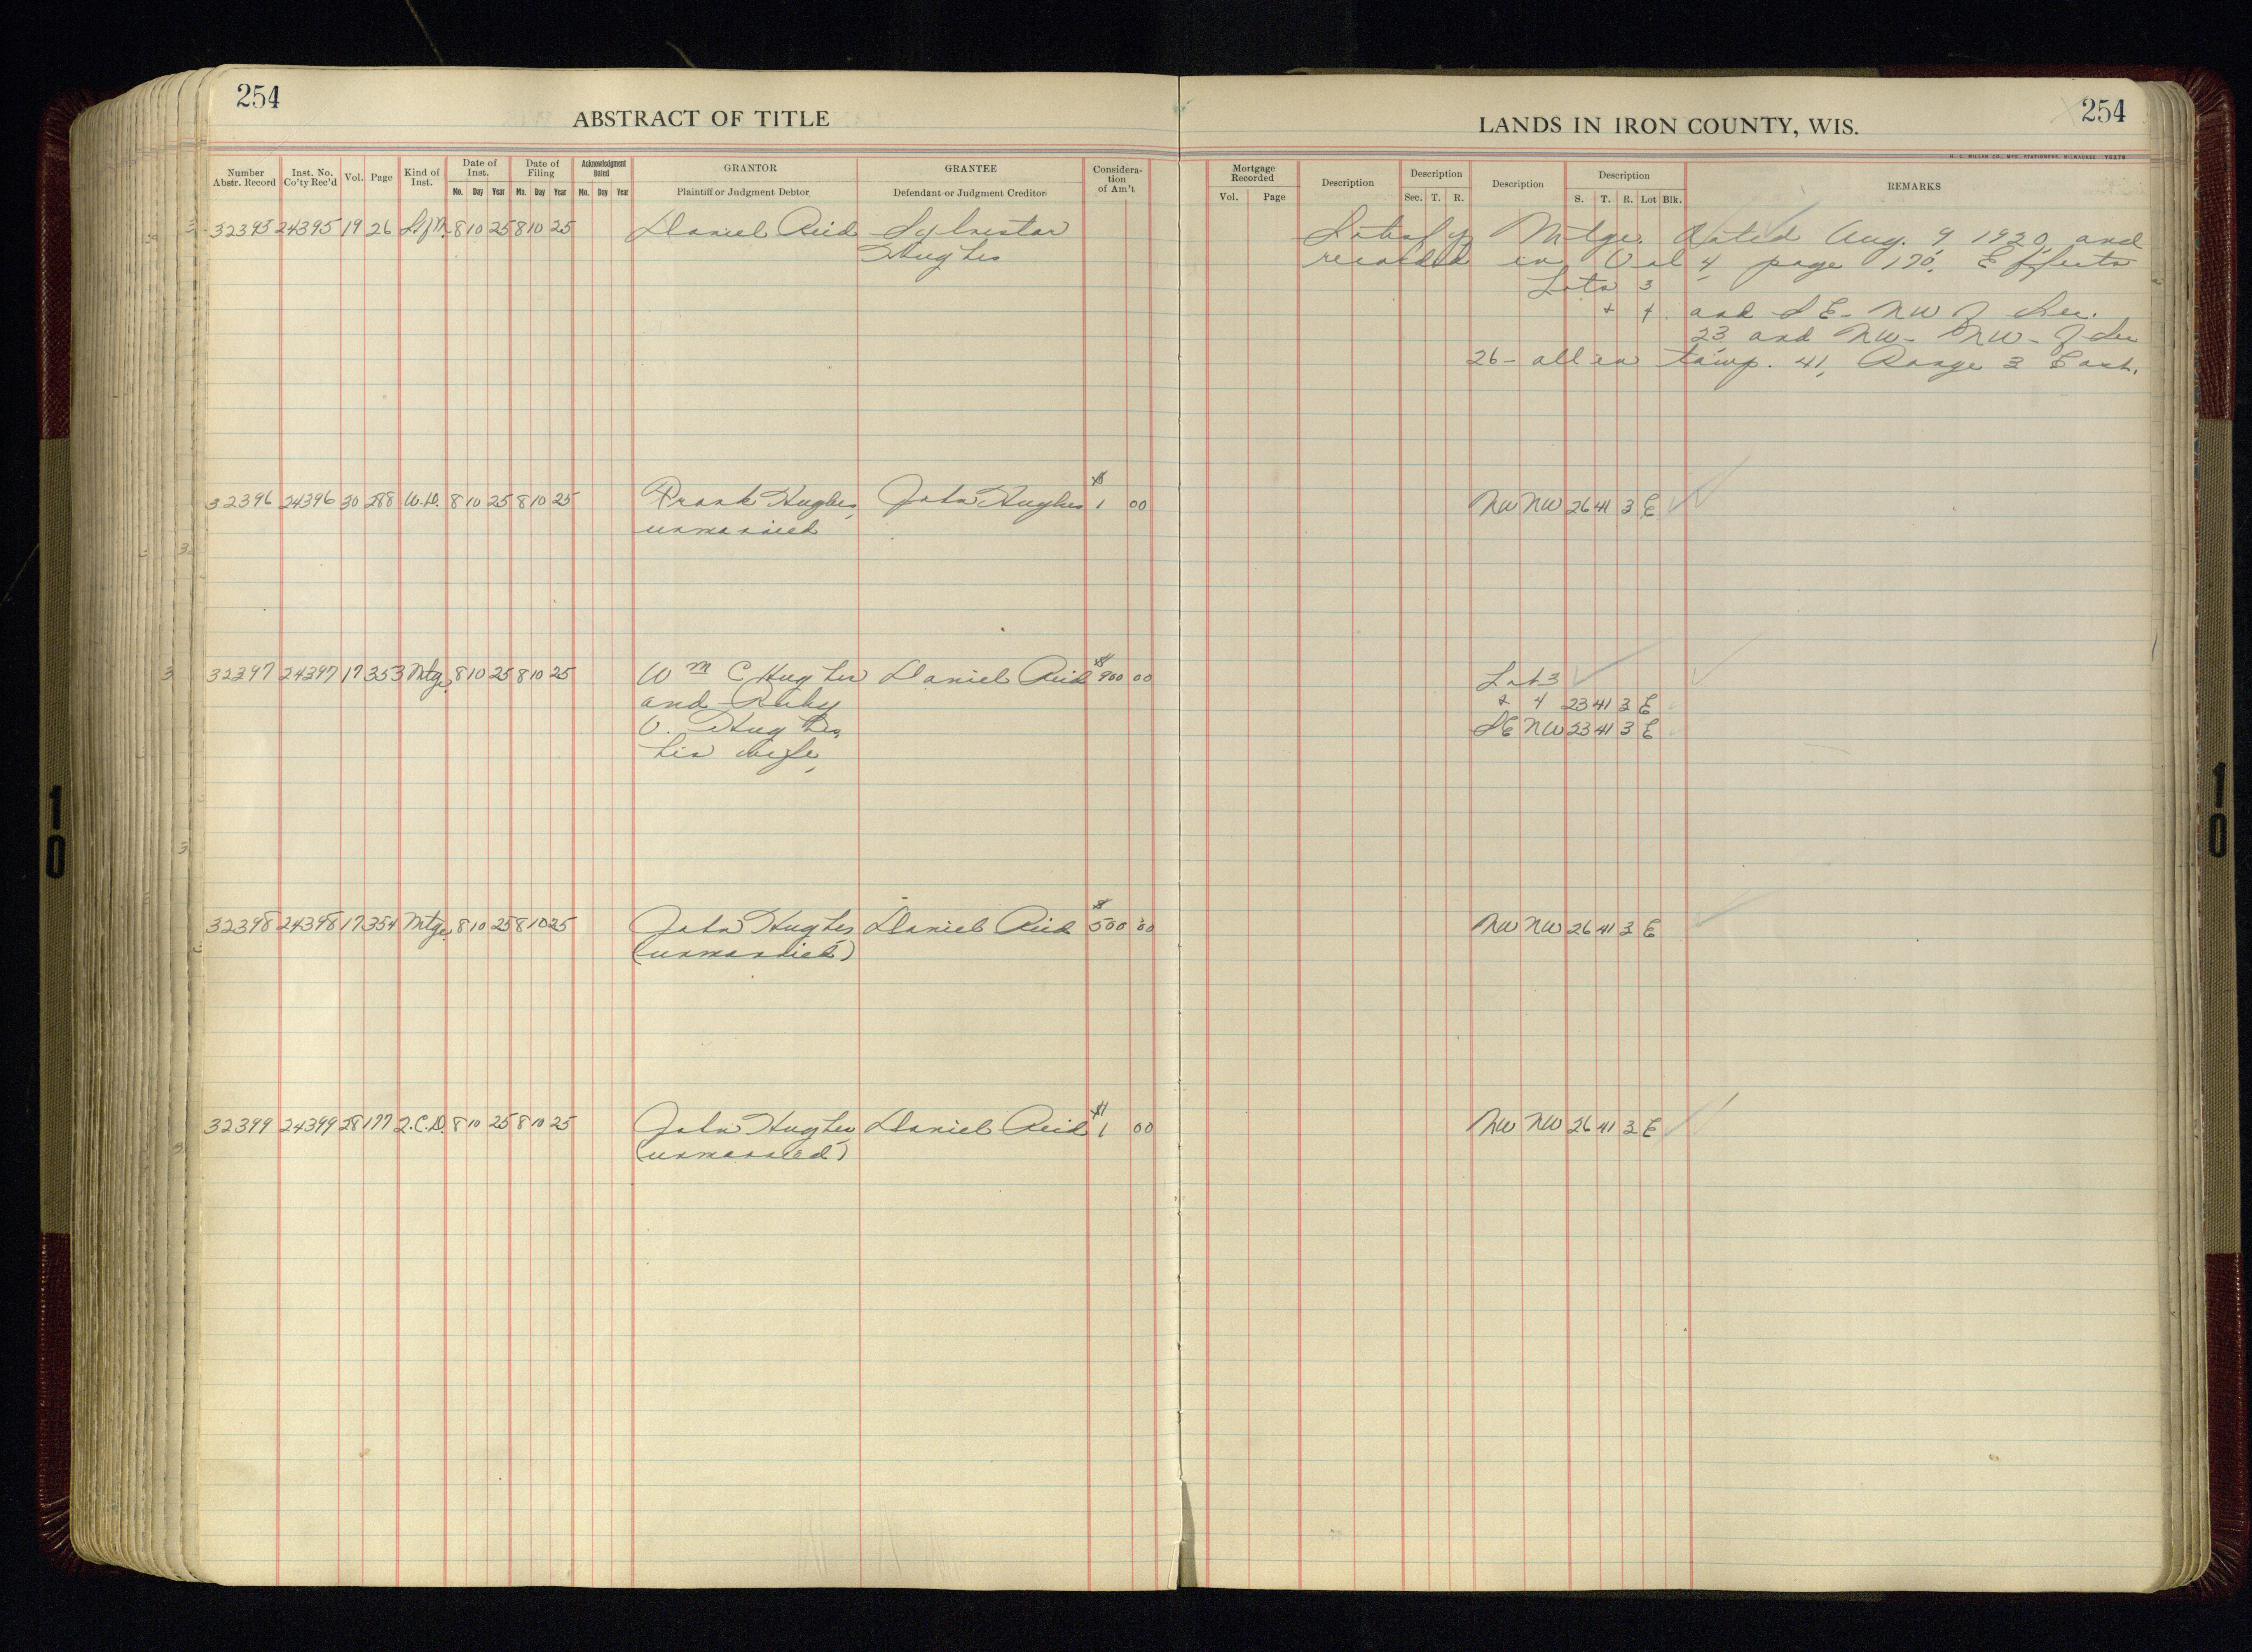 254
ABSTRACT OF TITLE
LANDS IN IRON COUNTY, WIS.
254
H. C. MILLER CO., MFG. STATIONERS, MILWAUKEE Y6279
Number Abstr. Record Inst. No. Co'ty Rec'd Vol. Page Kind of Inst. Date of Inst. Mo. Day Year Date of Filing Mo. Day Year Acknowledgment Dated Mo. Day Year GRANTOR Plaintiff or Judgment Debtor GRANTEE Defendant or Judgment Creditor Considera-tion of Am't
Mortgage Recorded Vol. Page Description Description Sec. T. R. Description Description S. T. R. Lot Blk. REMARKS
32395 24395 19 26 8 10 25 8 10 25 Daniel Reid Sylvester
Hughes
Satisfys Mtge. Dated Aug. 9 1920, and
recorded in Vol 4 page 170. Effects
Lots 3
+ 4. and SE - NW of Sec.
23 and NW - NW - of Sec
26 - all in Town. 41, Range 3 East.
32396 24396 30 288 W.D. 8 10 25 8 10 25 Frank Hughes, John Hughes $ 1 00 NW NW 26 41 3 E
unmarried
32397 24397 17 353 Mtge. 8 10 25 8 10 25 Wm C Hughes Daniel Reid $ 900 00 Lot 3
and Ruby & 4 23 41 3 E
V. Hughes, SE NW 23 41 3 E
his wife,
32398 24398 17 354 Mtge. 8 10 25 8 10 25 John Hughes Daniel Reid $ 500 00 NW NW 26 41 3 E
(unmarried)
32399 24399 28 177 Q.C.D. 8 10 25 8 10 25 John Hughes Daniel Reid $ 1 00 NW NW 26 41 3 E
(unmarried)
10
10